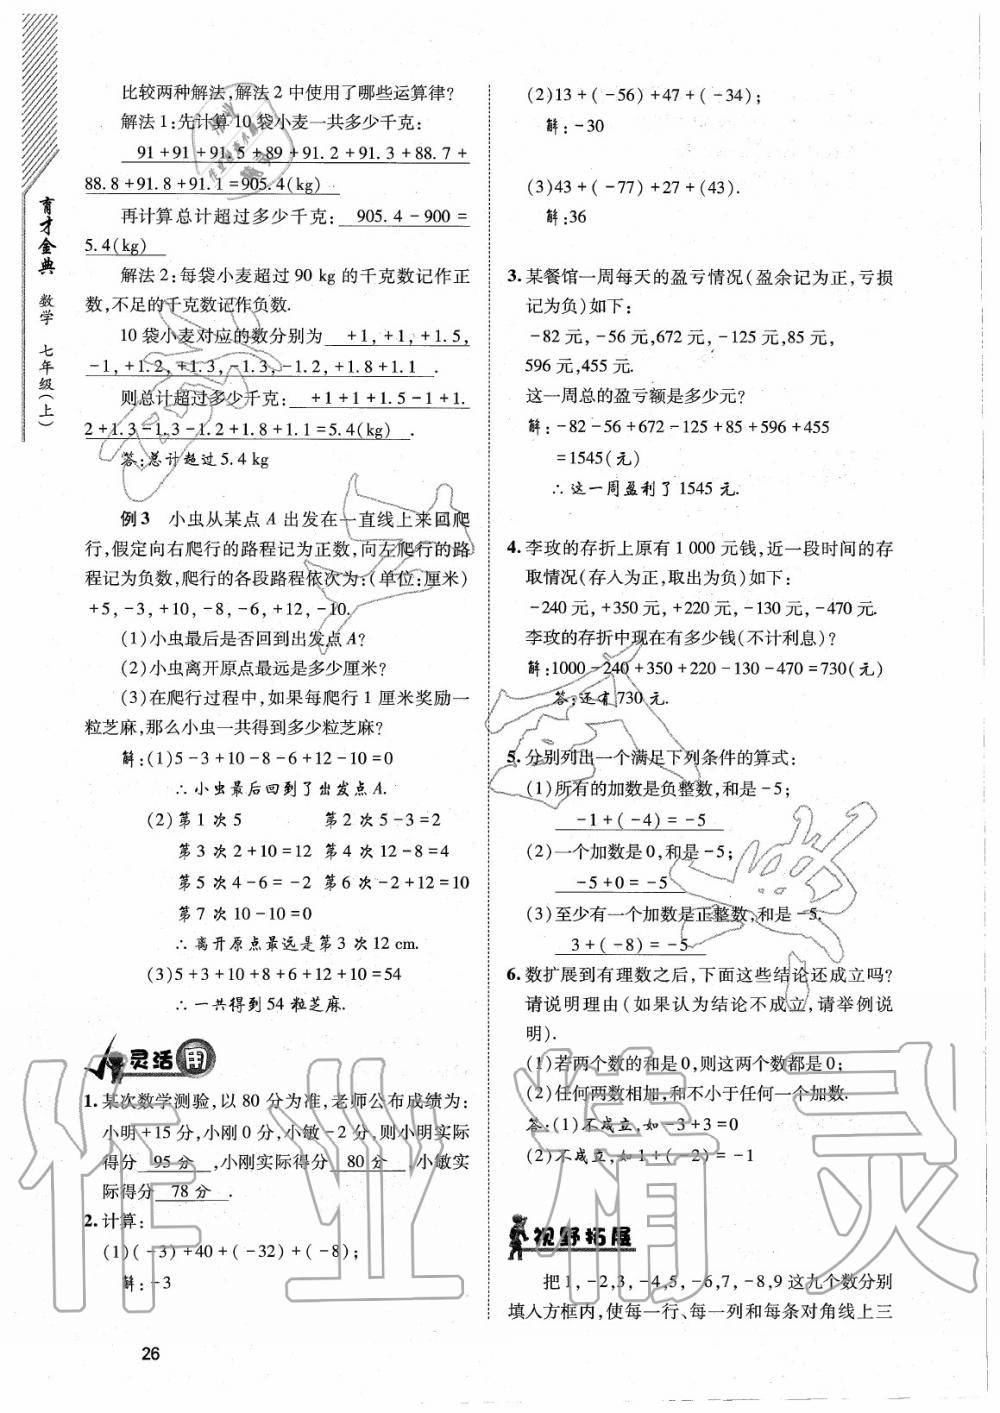 比较两种解法,解法 2 中使用了哪些运算律?
解法 1:先计算 10 袋小麦一共多少千克:
91+91+91.5+89+91.2+91.3+88.7+
88.8+91.8+91.1=905.4(kg)
再计算总计超过多少千克: 905.4-900=
5.4(kg)
解法 2:每袋小麦超过 90 kg 的千克数记作正
数,不足的千克数记作负数.
10 袋小麦对应的数分别为 +1,+1,+1.5,
-1,+1.2,+1.3,-1.3,-1.2,+1.8+1.1 .
则总计超过多少千克: +1+1+1.5-1+1.
2+1.3-1.3-1.2+1.8+1.1=5.4(kg) .
答:总计超过 5.4 kg
例 3 小虫从某点 A 出发在一直线上来回爬
行,假定向右爬行的路程记为正数,向左爬行的路
程记为负数,爬行的各段路程依次为:(单位:厘米)
+5,-3,+10,-8,-6,+12,-10.
(1)小虫最后是否回到出发点 A?
(2)小虫离开原点最远是多少厘米?
(3)在爬行过程中,如果每爬行 1 厘米奖励一
粒芝麻,那么小虫一共得到多少粒芝麻?
解:(1)5-3+10-8-6+12-10=0
∴小虫最后回到了出发点 A.
(2)第 1 次 5 第 2 次 5-3=2
第 3 次 2+10=12 第 4 次 12-8=4
第 5 次 4-6=-2 第 6 次 -2+12=10
第 7 次 10-10=0
∴离开原点最远是第 3 次 12 cm.
(3)5+3+10+8+6+12+10=54
∴一共得到 54 粒芝麻.
灵活用
1. 某次数学测验,以 80 分为准,老师公布成绩为:
小明+15 分,小刚 0 分,小敏 -2 分,则小明实际
得分 95 分 ,小刚实际得分 80 分 ,小敏实
际得分 78 分 .
2. 计算:
(1)(-3)+40+(-32)+(-8);
解:-3
26
(2)13+(-56)+47+(-34);
解:-30
(3)43+(-77)+27+(43).
解:36
3. 某餐馆一周每天的盈亏情况(盈余记为正,亏损
记为负)如下:
-82 元,-56 元,672 元,-125 元,85 元,
596 元,455 元.
这一周总的盈亏额是多少元?
解:-82-56+672-125+85+596+455
=1545(元)
∴这一周盈利了 1545 元.
4. 李玫的存折上原有 1 000 元钱,近一段时间的存
取情况(存入为正,取出为负)如下:
-240 元,+350 元,+220 元,-130 元,-470 元.
李玫的存折中现在有多少钱(不计利息)?
解:1000-240+350+220-130-470=730(元)
答:还有 730 元.
5. 分别列出一个满足下列条件的算式:
(1)所有的加数是负整数,和是-5;
-1+(-4)=-5
(2)一个加数是 0,和是-5;
-5+0=-5
(3)至少有一个加数是正整数,和是-5.
3+(-8)=-5
6. 数扩展到有理数之后,下面这些结论还成立吗?
请说明理由(如果认为结论不成立,请举例说
明).
(1)若两个数的和是 0,则这两个数都是 0;
(2)任何两数相加,和不小于任何一个加数.
答:(1)不成立,如 -3+3=0
(2)不成立,如 1+(-2)=-1
视野拓展
把 1,-2,3,-4,5,-6,7,-8,9 这九个数分别
填入方框内,使每一行、每一列和每条对角线上三
育才金典 数学 七年级(上)
作业精灵